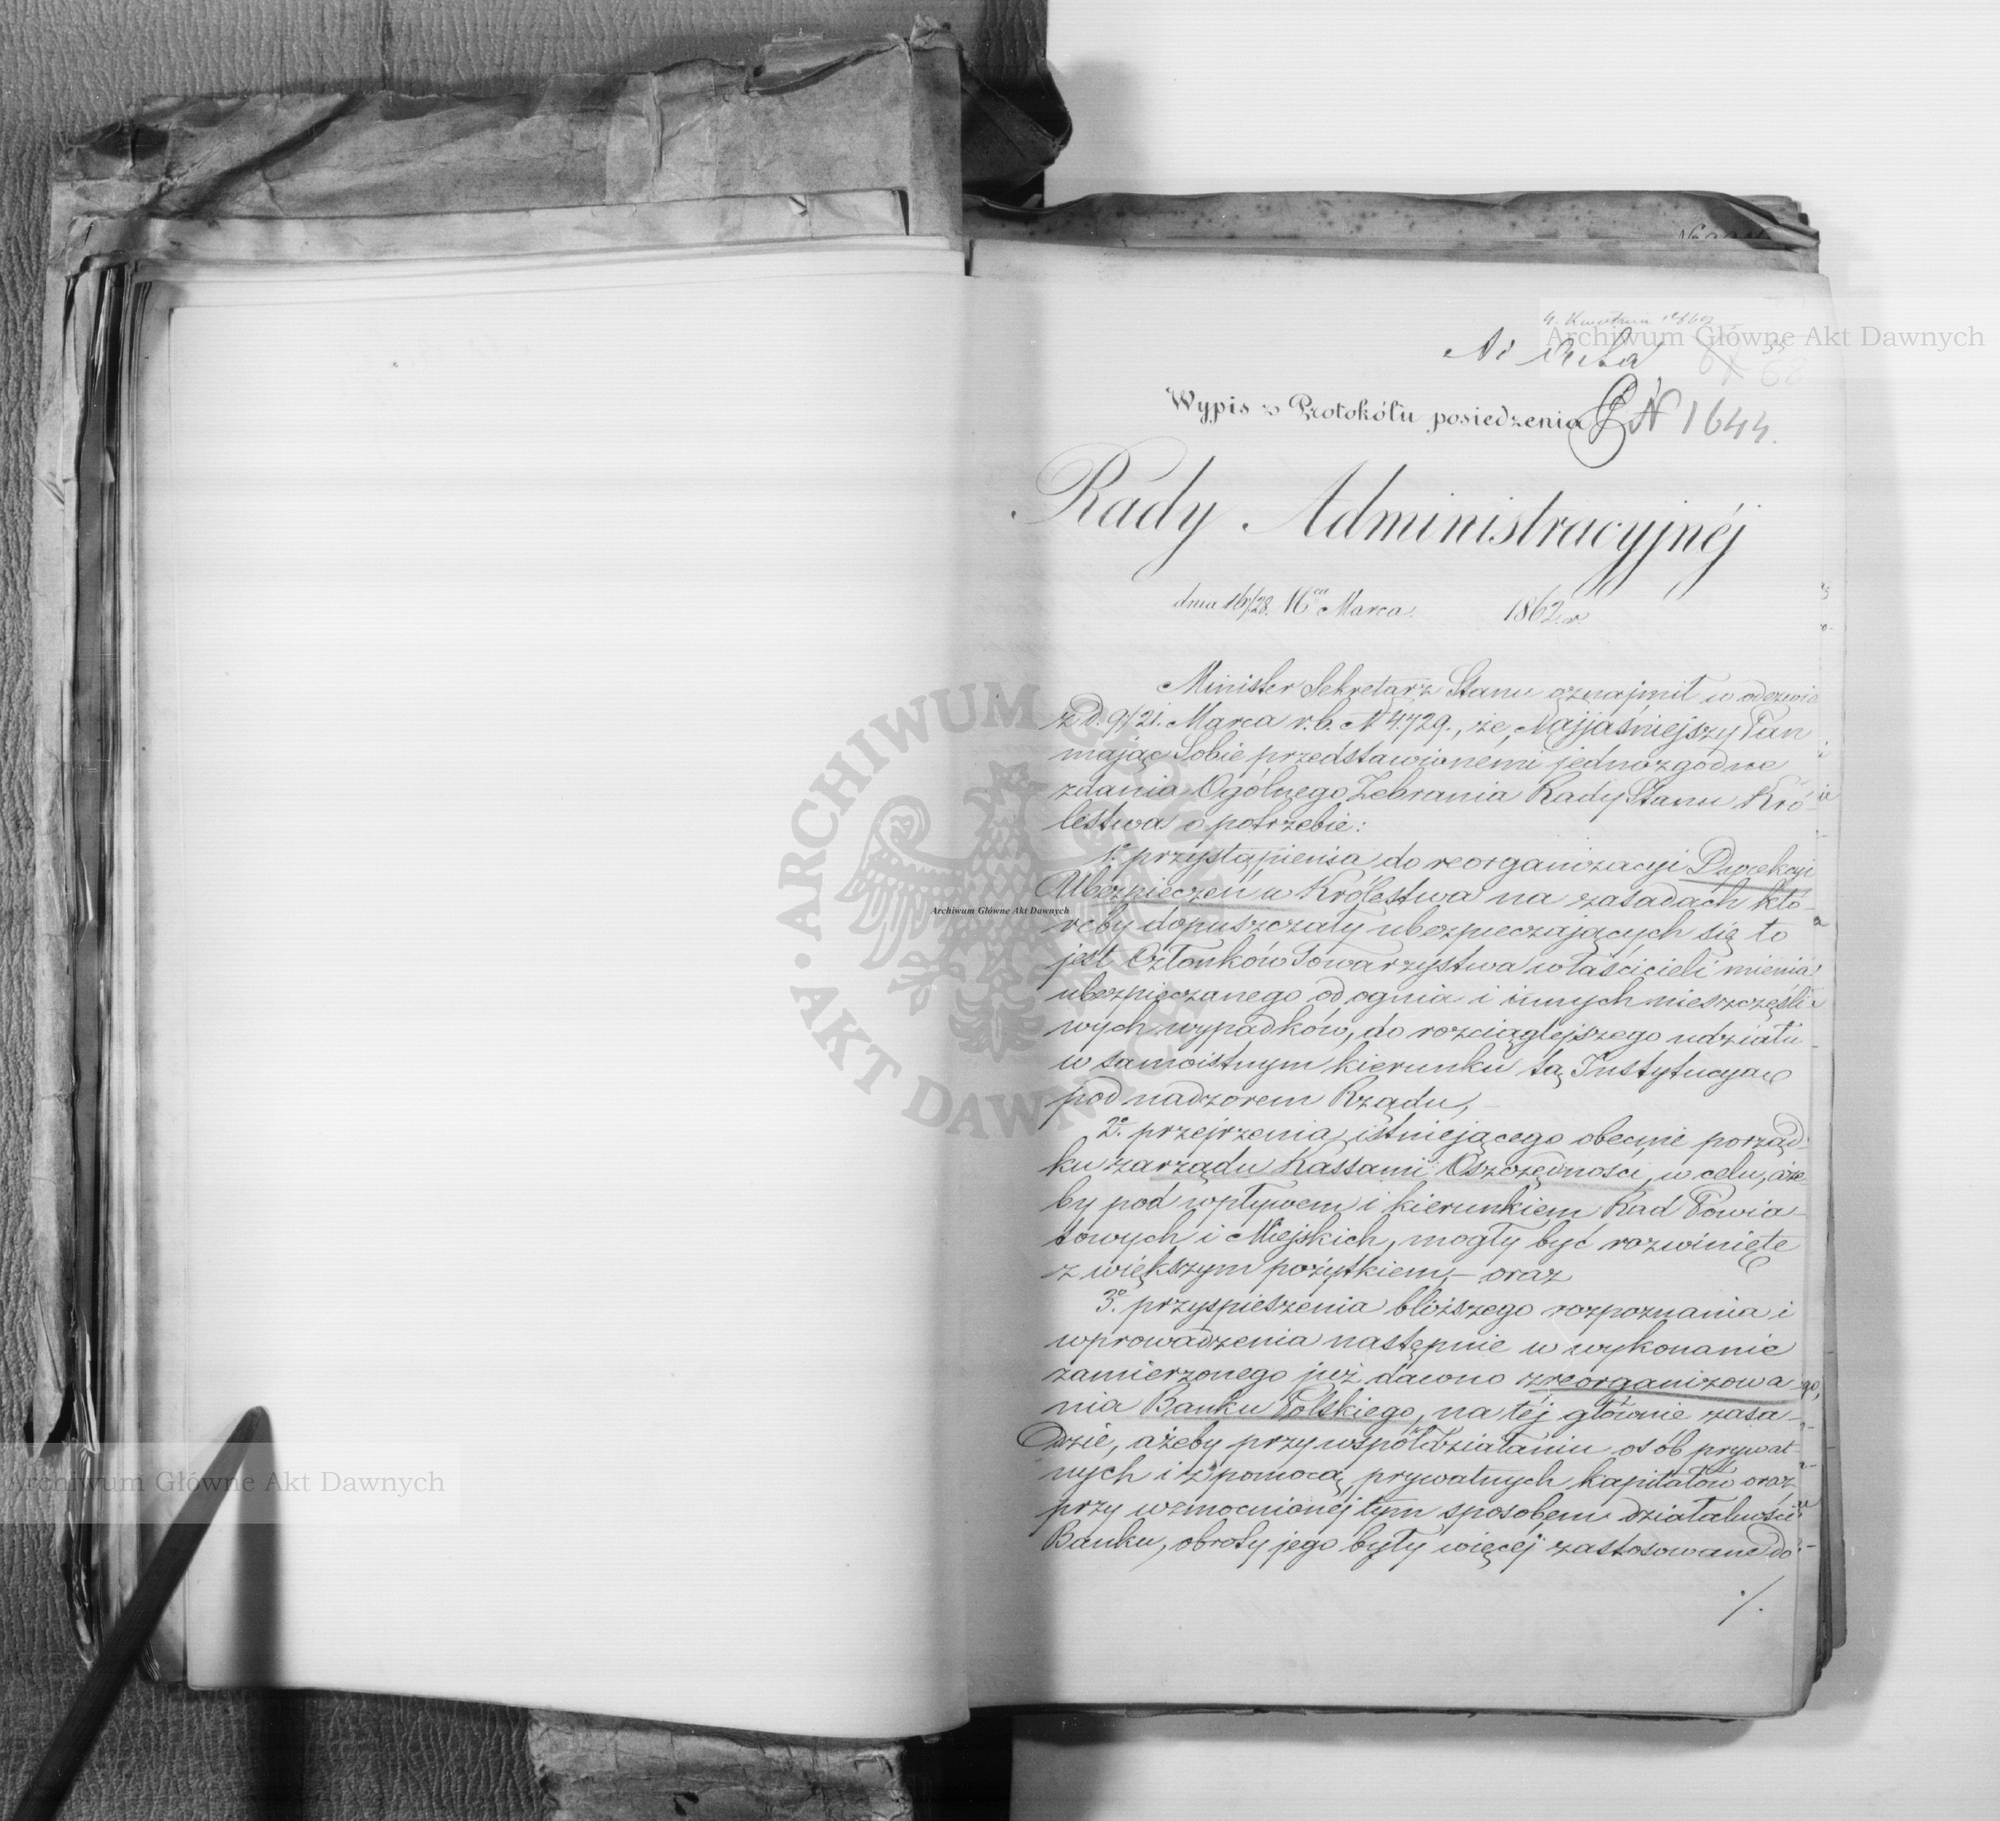 4. Kwietnia 1862
Ad Acta
Wypis z Protokółu posiedzenia N 1644.
Rady Administracyjnéj
dnia 16/28. Mca Marca. 1862. r.
Minister Sekretarz Stanu oznajmił w odezwie
z d. 9/21. Marca r. b. N 4,729., że, Najjaśniejszy Pan
mając Sobie przedstawionemi jednozgodne
zdania Ogólnego Zebrania Rady Stanu Kró-
lestwa o potrzebie:
1º. przystąpienia do reorganizacyi Dyrekcyi
Ubezpieczeń w Królestwa na zasadach któ-
reby dopuszczały ubezpieczających się to
jest Członków Towarzystwa właścicieli mienia
ubezpieczanego od ognia i innych nieszczęśli-
wych wypadków, do rozciąglejszego udziału
w samoistnym kierunku tą Instytucyą
pod nadzorem Rządu, –
2º. przejrzenia istniejącego obecnie porząd-
ku zarządu Kassami Oszczędności, w celu, aże-
by pod wpływem i kierunkiem Rad Powia-
towych i Miejskich, mogły być rozwinięte
z większym pożytkiem, – oraz
3º. przyspieszenia bliższego rozpoznania i
wprowadzenia następnie w wykonanie
zamierzonego już dawno zreorganizowa-
nia Banku Polskiego, na téj głównie zasa-
dzie, ażeby przy współdziałaniu osób prywat-
nych i z pomocą prywatnych kapitałów oraz
przy wzmocnionéj tym sposobem działalności
Banku, obroty jego były więcéj zastosowane do
./.
Archiwum Główne Akt Dawnych
ARCHIWUM GŁÓWNE AKT DAWNYCH
Archiwum Główne Akt Dawnych
Archiwum Główne Akt Dawnych